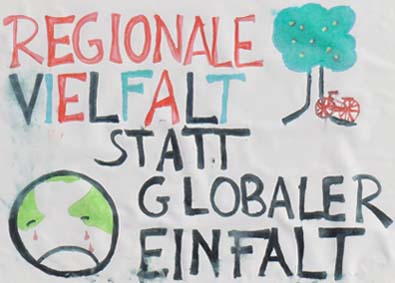 REGIONALE
VIELFALT
STATT
GLOBALER
EINFALT